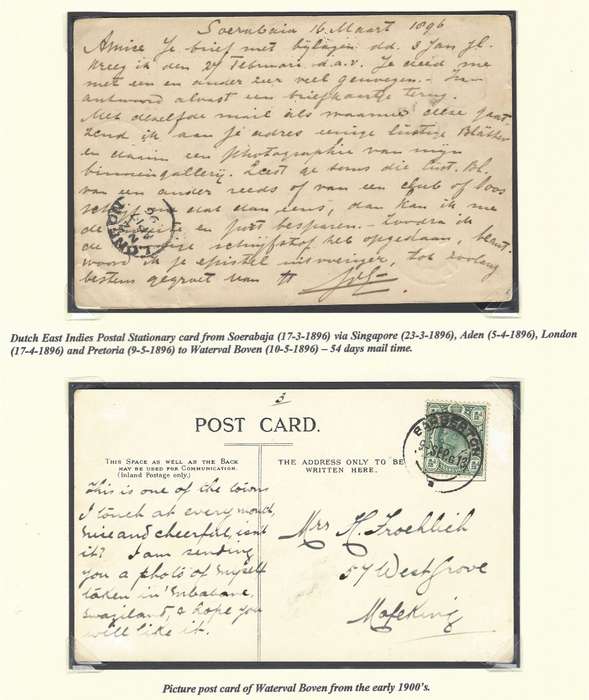 Soerabaia 16 Maart 1896
Amice Je brief met bijlagen dd. 3 Jan jl.
kreeg ik den 27 Februari d.a.v. Je deed me
met een en ander zeer veel genoegen. - In
antwoord alvast een briefkaartje terug.
Met dezelfde mail als waarmee deze gaat
zend ik aan je adres eenige lustige Blätter
en daarin een photographie van mijn
binnengallerij. Leest ge soms die Lust. Bl.
van een ander reeds of van een club of loos
schrijf dat dan eens, dan kan ik me
de en port besparen. - Zoodra ik
de schrijfstof heb opgedaan, beant-
woord ik je epistel uitvoeriger, tot zoolang
bestens gegroet van
LONDON
96
Dutch East Indies Postal Stationary card from Soerabaja (17-3-1896) via Singapore (23-3-1896), Aden (5-4-1896), London
(17-4-1896) and Pretoria (9-5-1896) to Waterval Boven (10-5-1896) – 54 days mail time.
3
POST CARD.
THIS SPACE AS WELL AS THE BACK
MAY BE USED FOR COMMUNICATION.
(Inland Postage only.)
THE ADDRESS ONLY TO BE
WRITTEN HERE.
BARBERTON
This is one of the towns
I touch at every month,
nice and cheerful, isn't
it? I am sending
you a photo of myself
taken in Mbabane,
Swaziland, & hope you
will like it.
Mrs H. Froehlich
57 Westgrove
Mafeking
Picture post card of Waterval Boven from the early 1900's.